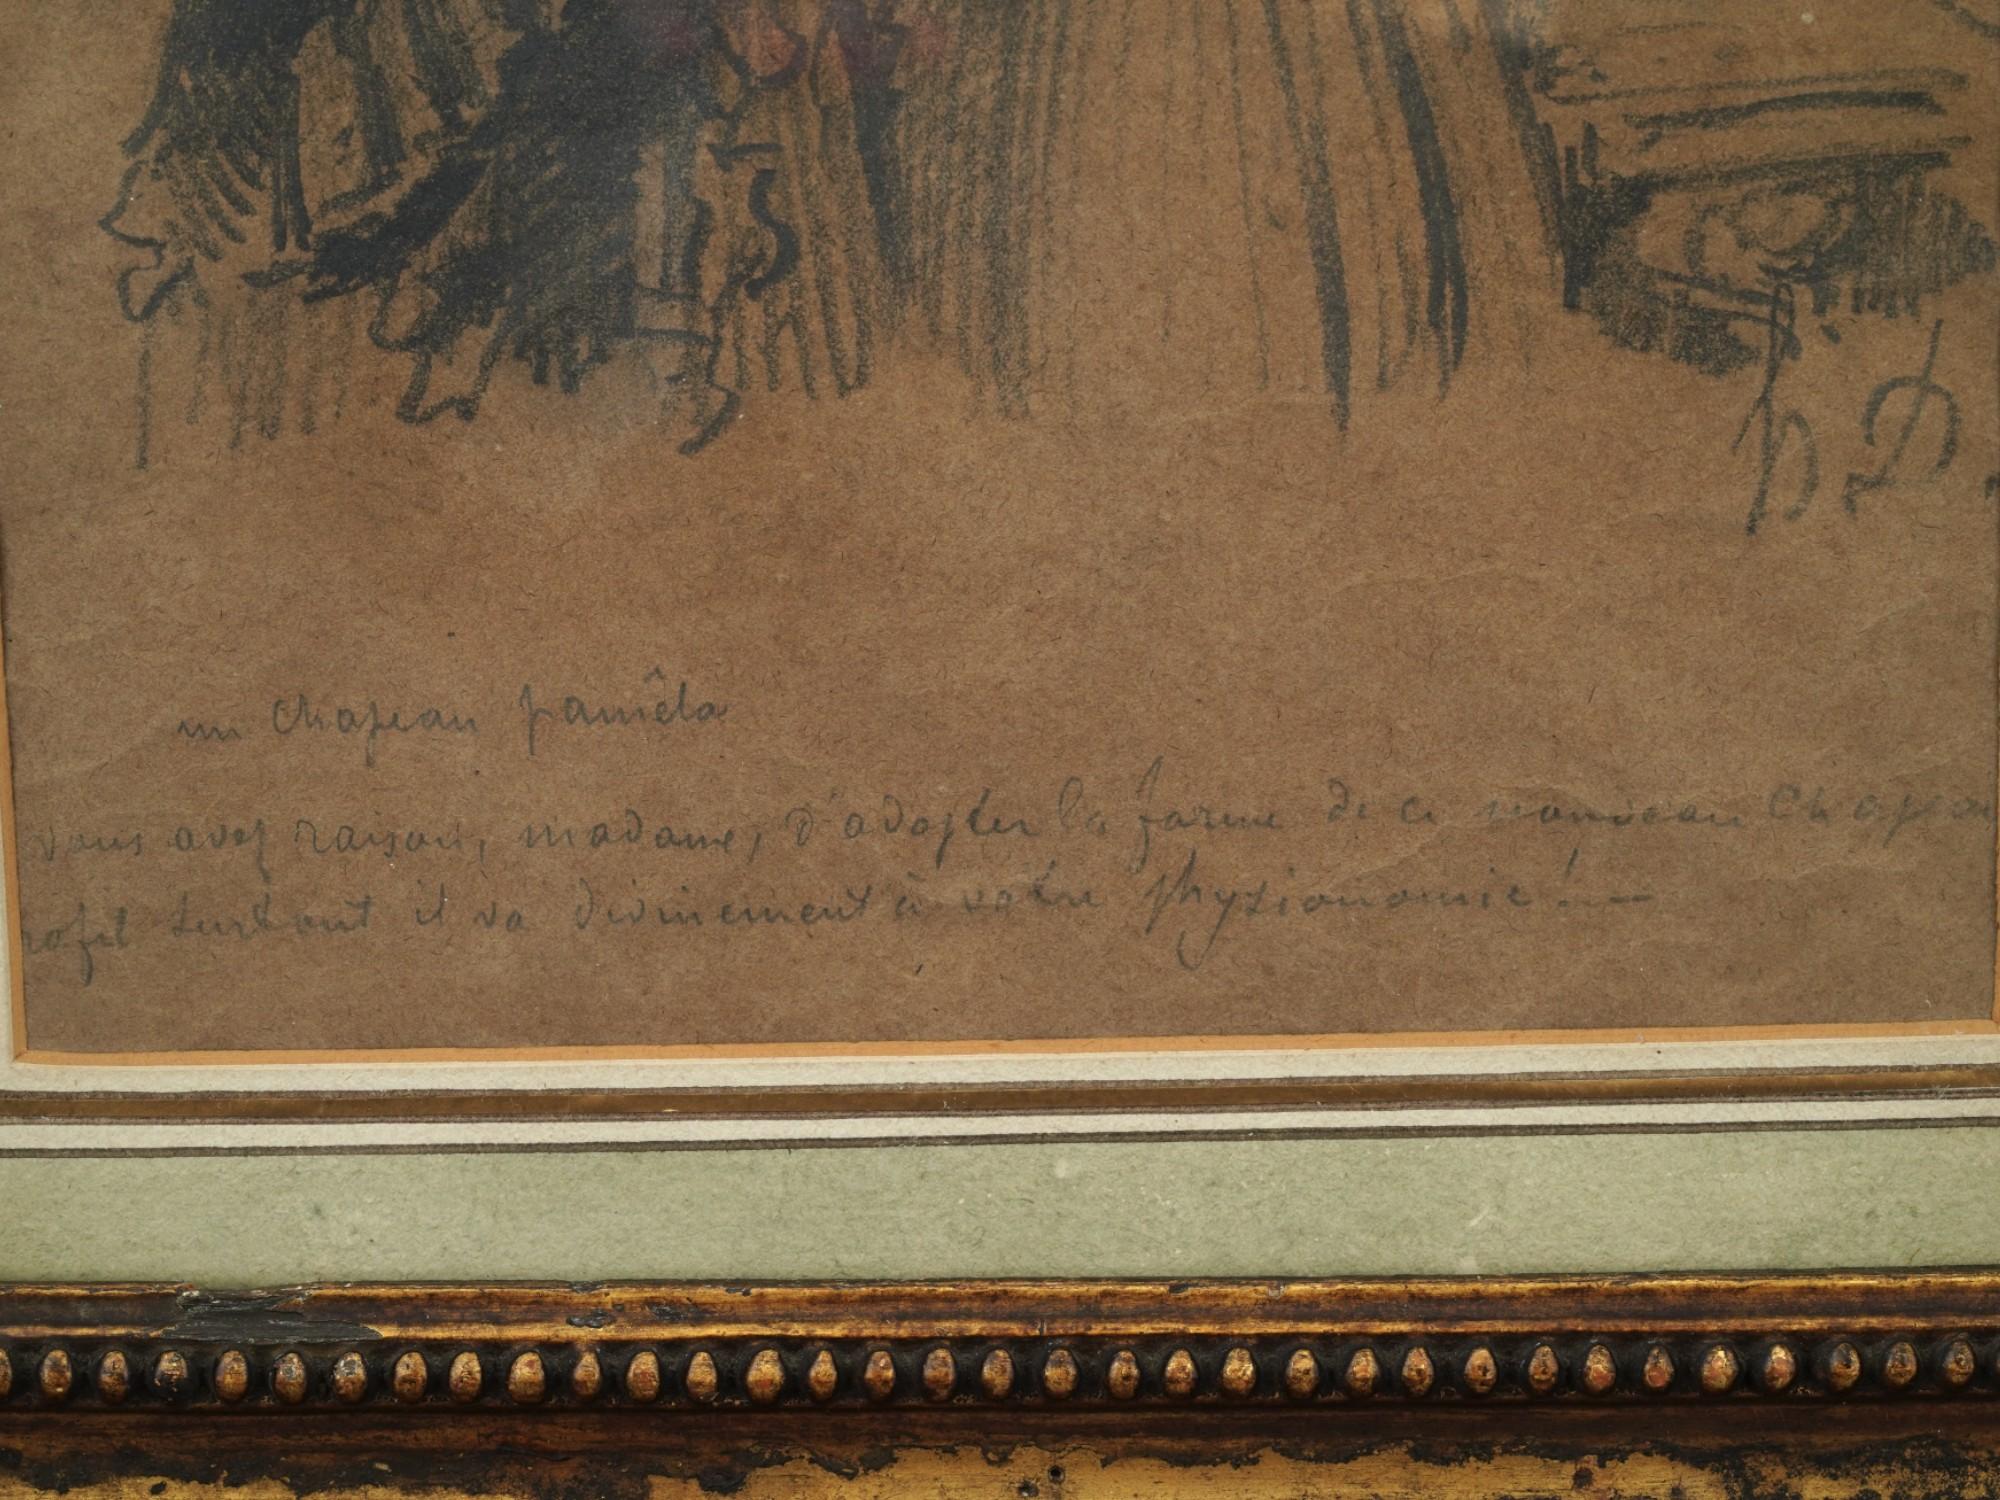 h. D.
un chapeau pamêla
vous avez raison, madame, d'adopter la forme de ce nouveau chapea
rofil surtout il va divinement à votre physionomie! —